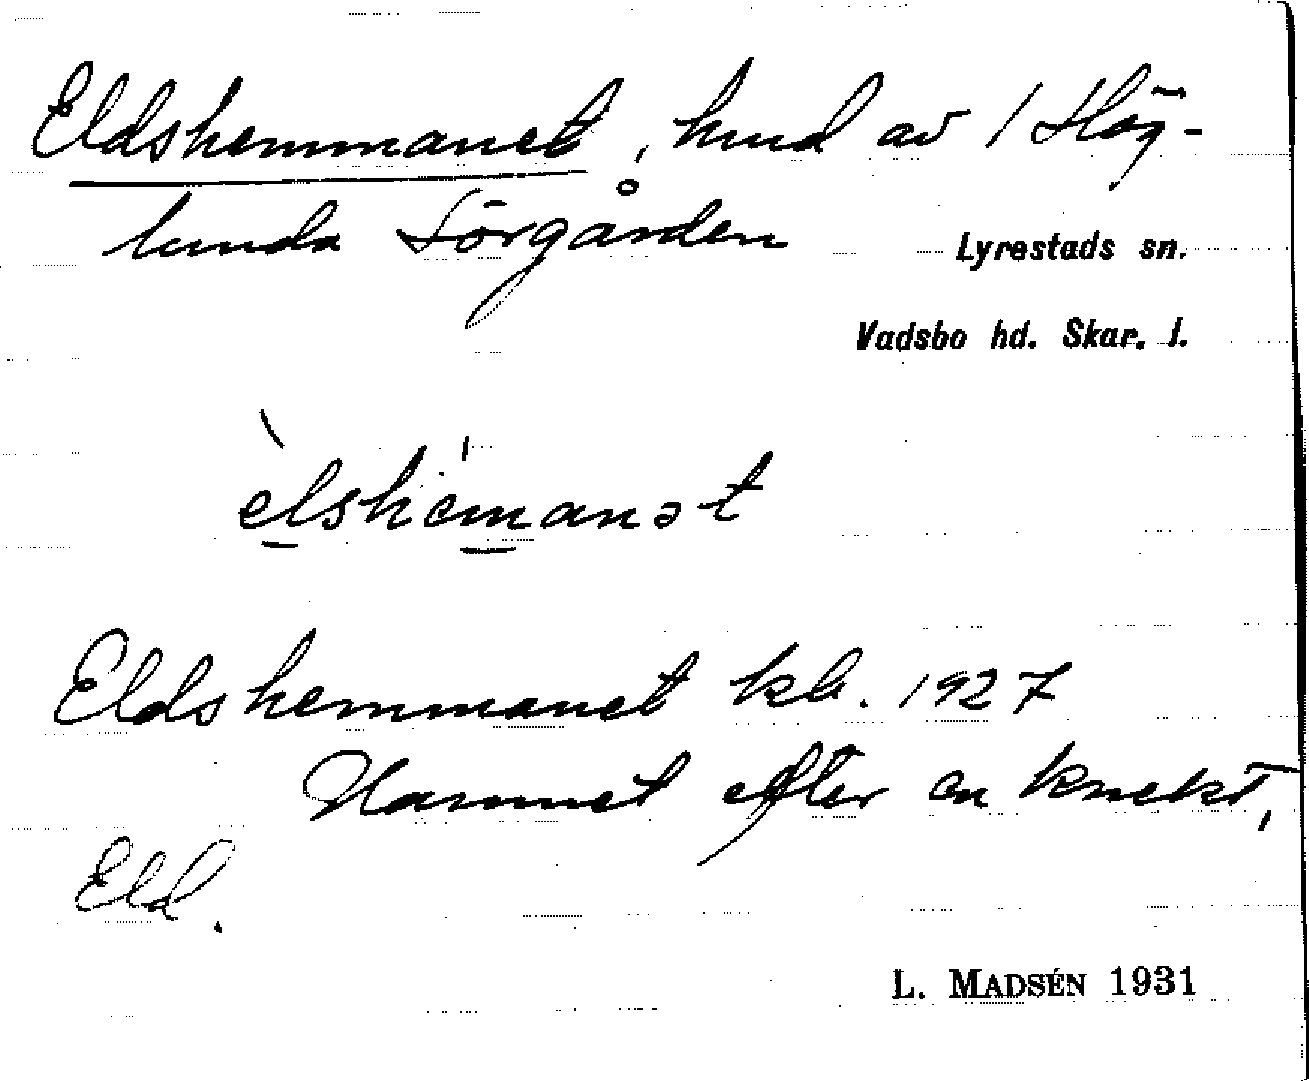 Eldshemmanet, hmd av 1 Hög-
lunda Sörgården
Lyrestads sn.
Vadsbo hd. Skar. l.
èlshémanət
Eldshemmanet kb. 1927
Namnet efter en knekt,
Eld.
L. MADSÉN 1931